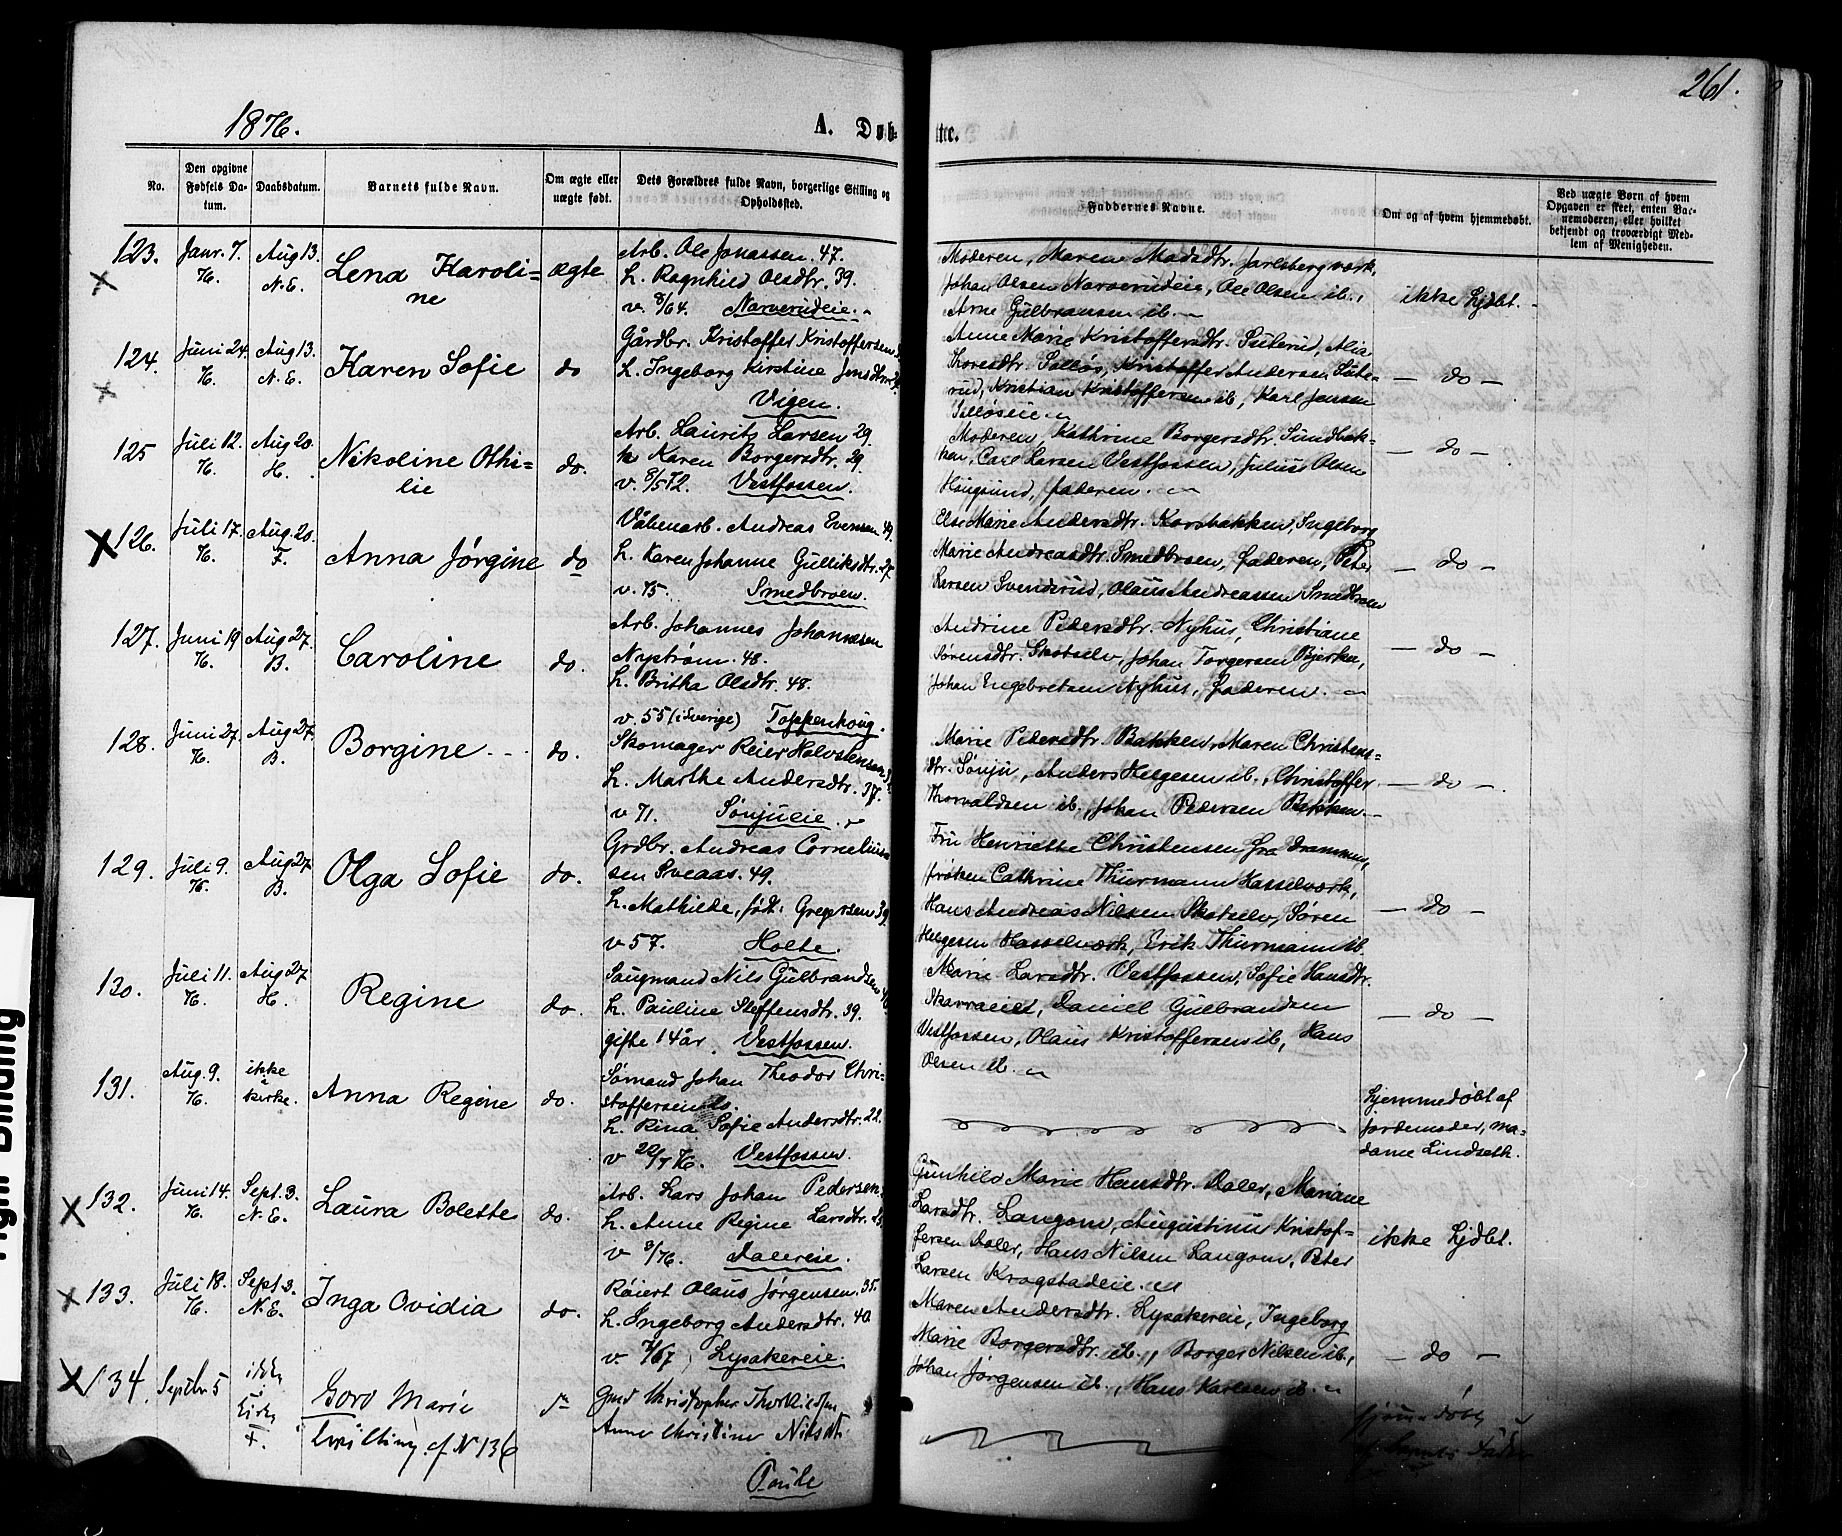 1876.
A. Døb-
te.
261.
No.
Den opgivne Fødsels Da-
tum.
Daabsdatum.
Barnets fulde Navn.
Om ægte eller
uægte født.
Dets Forældres fulde Navn, borgerlige Stilling og
Opholdssted.
Faddernes Navne.
Om og af hvem hjemmedøbt.
Ved uægte Børn af hvem
Opgaven er skeet, enten Bar-
nemoderen, eller hvilket
bekjendt og troværdigt Med-
lem af Menigheden.
123. Janr. 7. H. Aug 13. N.E. Lena Karoli-
ne
ægte
Arb. Ole Jonassen 47.
h. Ragnhild Olsdtr. 39.
v. 8/64. Narverudeie.
Moderen, Maren Madsdtr. Jarlsberg værk,
Johan Olsen Narverudeie, Ole Olsen ib.,
Arne Gulbransen ib.
ikke hjdbt.
124. Juni 24. H. Aug 13. N.E. Karen Sofie
do
Gårdbr. Kristoffer Kristoffersen
h. Ingeborg Kirstine Jensdtr.
Vigen.
Anne Marie Kristoffersdtr. Suterud,
Thoresdtr. Solløs, Kristoffer Andersen Sute-
rud, Kristian Kristoffersen ib, Karl Jensen
- do -
125 Juli 12. H. Aug 20. H. Nikoline Othi-
lie
do.
Arb. Laurits Larsen 29.
h. Karen Borgersdtr. 29.
v. 8/572. Vestfossen.
Moderen, Kathrine Borgersdtr. Sundbak-
ken, Carl Larsen Vestfossen, Julius Olsen
Hougsund, faderen.
- do -
126. Juli 17. H. Aug. 20. F. Anna Jørgine
do
Våbenarb. Andreas Evensen 49.
h. Karen Johanne Gulliksdtr. 27
v. 75. Smedbroen.
Else Marie Andersdtr. Korsbakken, Ingeborg
Marie Andreasdtr. Smedbroen, faderen, Peter
Larsen Svendsrud, Olaus Andreassen Smedbroen
- do -
127. Juni 19 H. Aug 27. B. Caroline
do.
Arb. Johannes Johannesen
Nystrøm. 48.
h. Britha Olsdtr. 48.
v. 55 (i Sverige) Toppenhoug.
Andrine Pedersdtr. Nyhus, Christiane
Sørensdtr. Skotselv, Johan Torgersen Bjerke,
Johan Engebretsen Nyhus, faderen.
- do -
128. Juni 27. H. Aug 27. B. Borgine.
do.
Skomager Reier Halvorsen
h. Marthe Andersdtr. 37.
v 71. Sønjueie.
Marie Pedersdtr. Bakken, Maren Christens-
dtr. Sønju, Anders Helgesen ib., Christoffer
Thorvaldsen ib, Johan Pedersen Bakken.
- do -
129. Juli 9. H. Aug 27 B. Olga Sofie
do.
Grdbr. Andreas Cornelius-
sen Sveaas. 49.
h. Mathilde, født Gregersen 39
v 57. Holte.
Fru Henriette Christensen fra Drammen,
frøken Cathrine Thurmann Hasselværk,
Hans Andreas Nilsen Skotselv, Søren
Helgesen Hasselværk, Erik Thurmann ib.
- do -
130. Juli 11. H. Aug 27 H. Regine
do.
Saugmand Nils Gulbrandsen
h. Pauline Steffensdtr. 39.
gifte 14 år. Vestfossen.
Marie Larsdtr. Vestfossen, Sofie Hansdtr.
Daniel Gulbrandsen
Vestfossen, Olaus Kristoffersen ib, Hans
Olsen ib.
- do -
131. Aug. 9. H. ikke i kirke. Anna Regine
do.
Sømand Johan Theodor Chri-
stoffersen
h. Rina Sofie Andersdtr. 22.
v 22/7 76. Vestfossen.
hjemmedøbt af
jordemoder, ma-
dame Lindseth.
132. Juni 14. H. Sept. 3. N.E. Laura Bolette
do.
Arb. Lars Johan Pedersen
h. Anne Regine Larsdtr. 25
v 3/76. Dalereie.
Gunhild Marie Hansdtr. Daler, Mariane
Larsdtr. Langom, Augustinus Kristof-
fersen Daler, Hans Nilsen Langom, Peter
Larsen Krogstadeie.
ikke hjdbt.
133. Juli 18. H. Sept 3. N.E. Inga Ovidia
do.
Røiert Olaus Jørgensen. 35.
h. Ingeborg Andersdtr. 40
v. 7/67, Lysakereie.
Maren Andersdtr. Lysakereie, Ingeborg
Marie Borgersdtr. ib., Borger Nilsen ib.,
Johan Jørgensen ib., Hans Karlsen ib.
- do -
134. Septbr 5 ikke i Kirke +. Goro Marie
tvilling. cf N 136
Gmd Christopher Thorkildsen
Anne Christine Nilsdt.
hjemmedøbt
af Barnets Fader